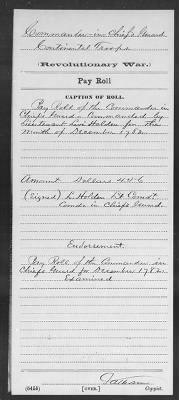 Commander-in-Chief's Guard
Continental Troops
(Revolutionary War.)
Pay Roll
CAPTION OF ROLL.
Pay Roll of the Commander in
Chief's Guard commanded by
Lieutenant Levi Holden for the
Month of December 1782
Amount Dollars 446
(Signed) L Holden Lt Comdt
Comdr in Chief's Guard
Endorsement.
Pay Roll of the Commander in
Chief's Guard for December 1782
Examined
(645) [OVER.] Copyist.